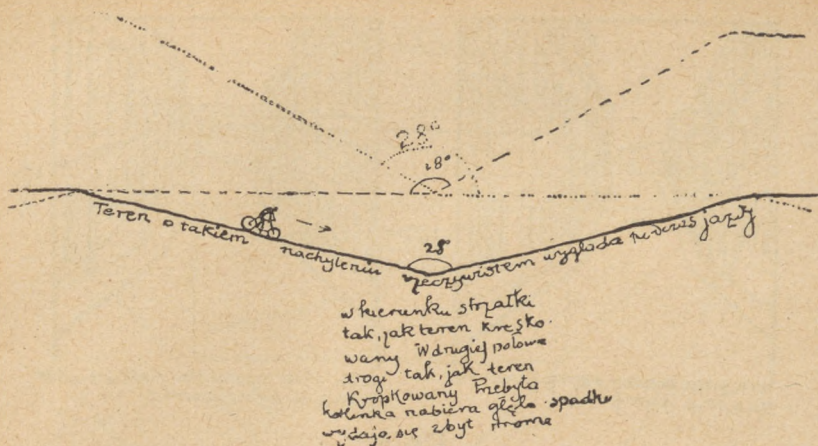 28°
18°
28
Teren o takiem nachyleniu rzeczywistem wygląda podczas jazdy
w kierunku strzałki
tak, jak teren kresko-
wany W drugiej połowie
drogi tak, jak teren
Kropkowany Przebyta
kotlinka nabiera głęb. spadki
wydają się zbyt strome